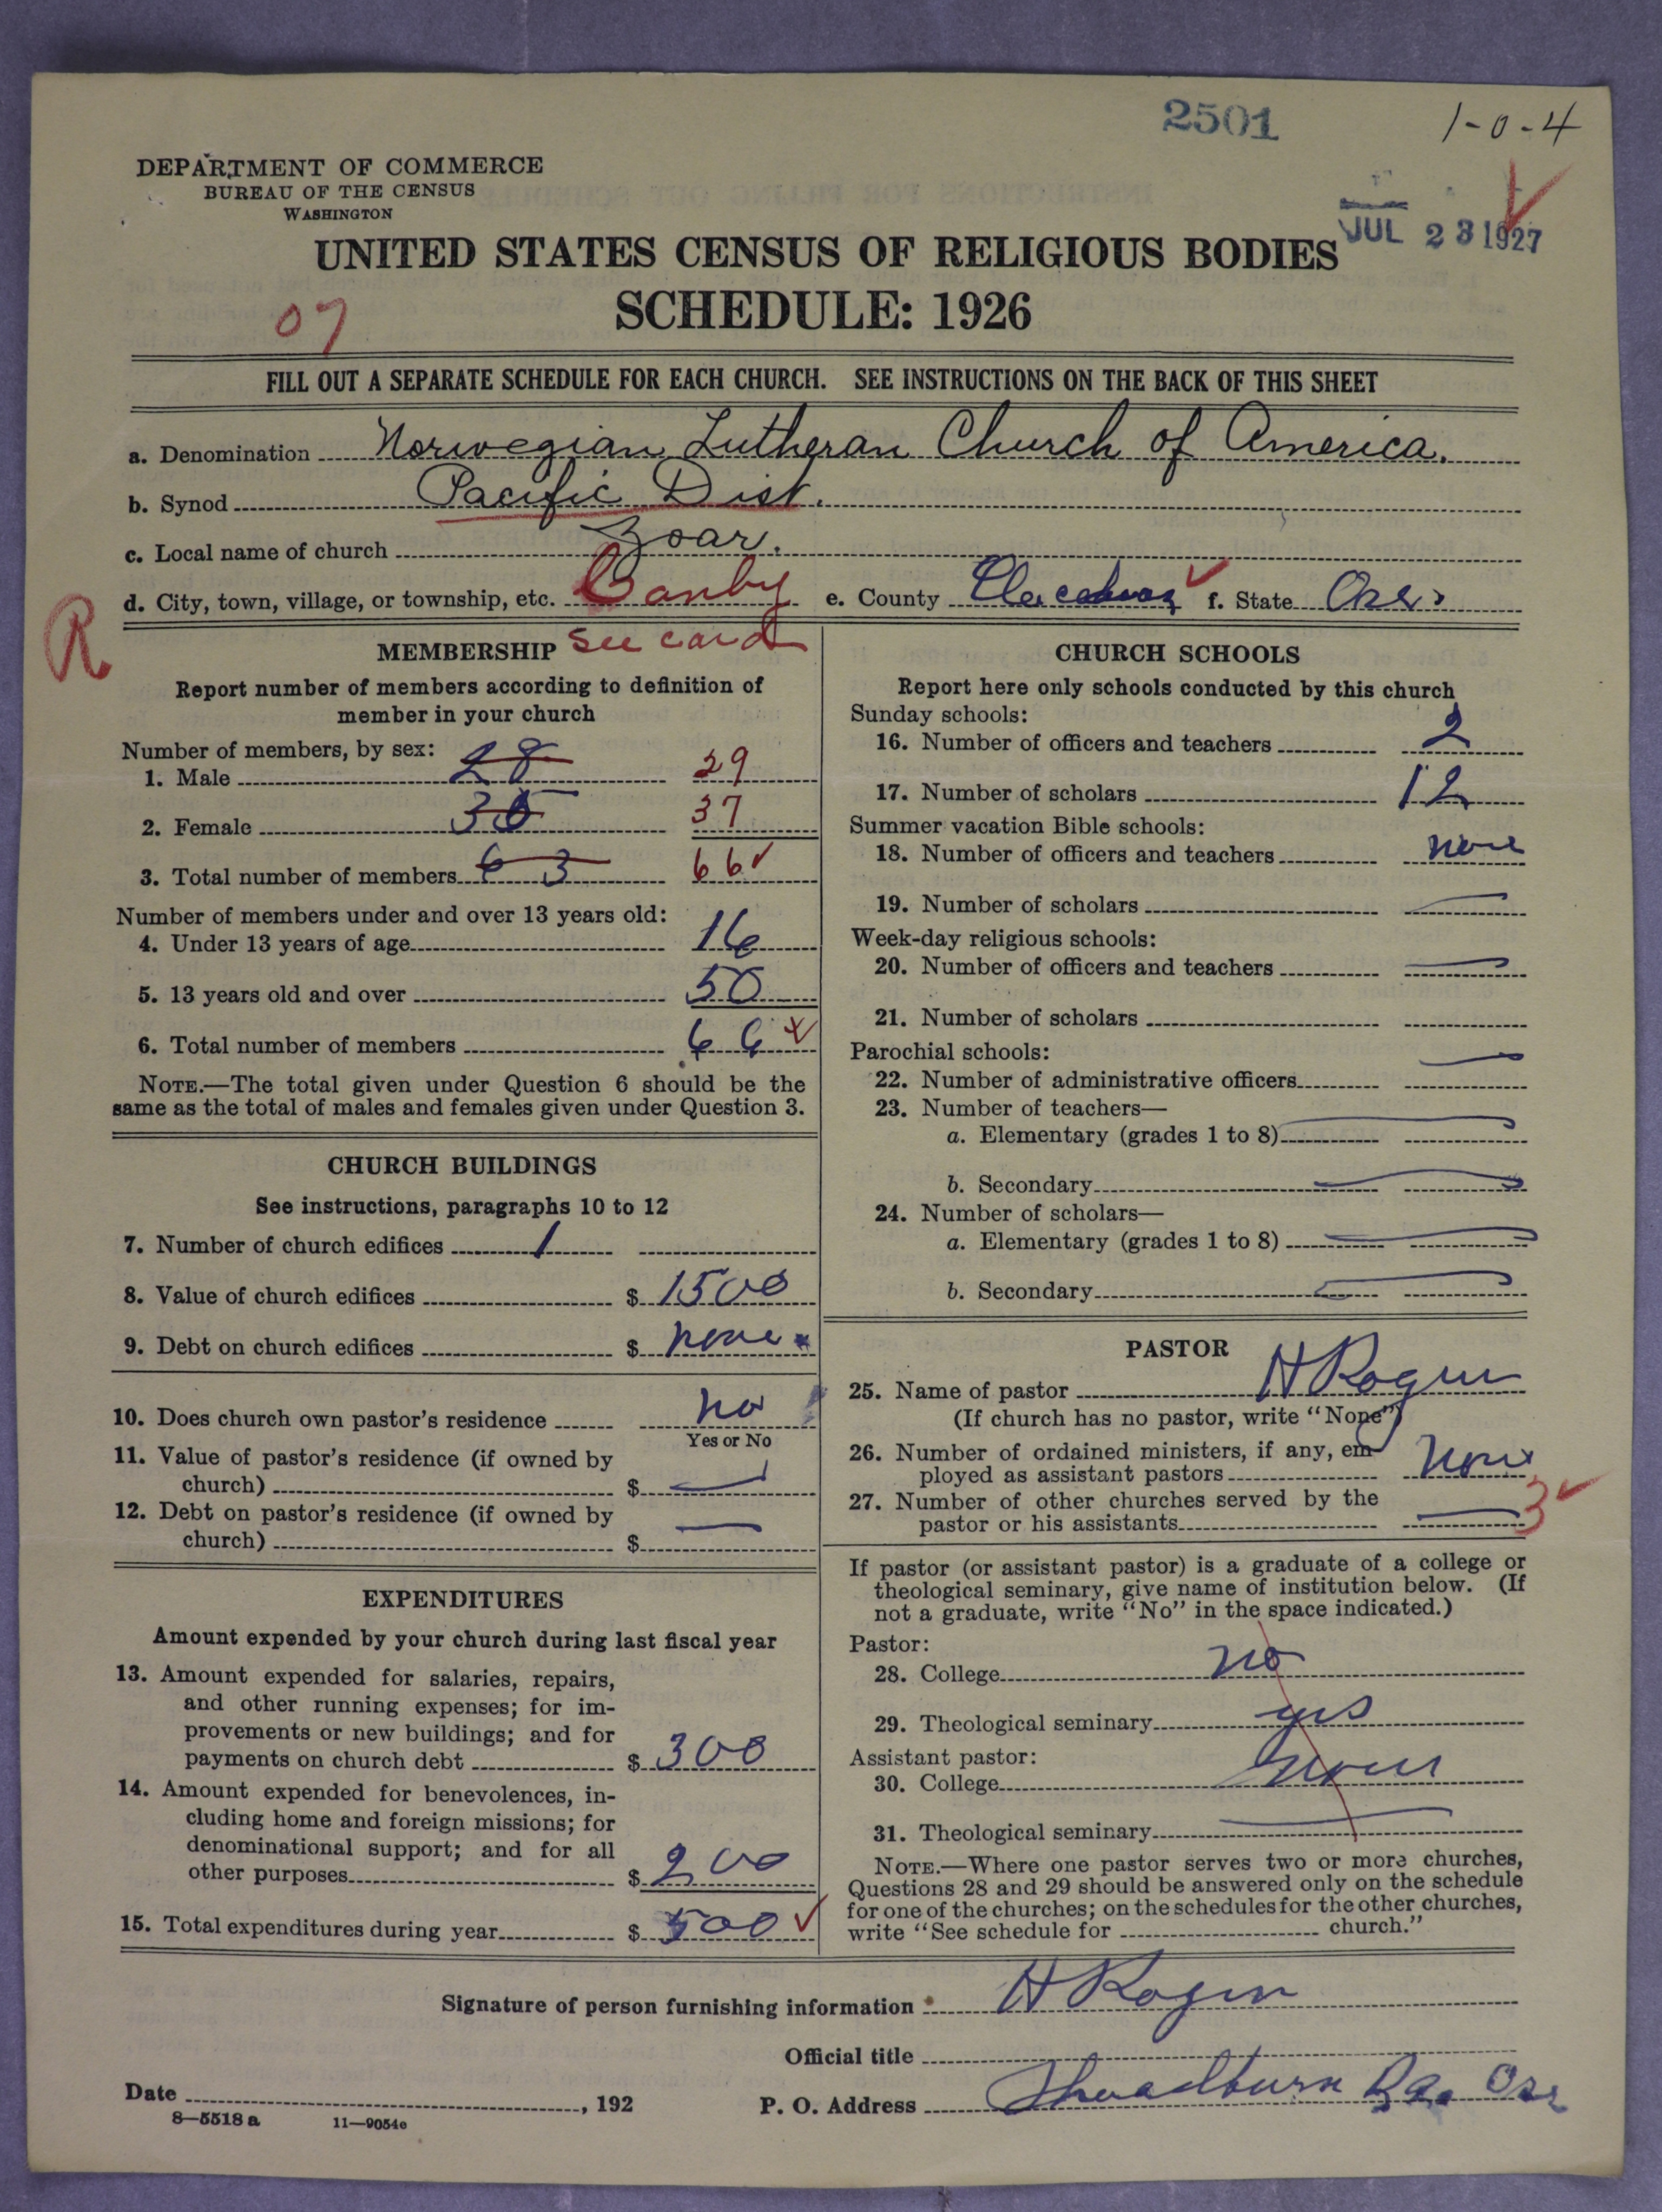 2501
1-0-4
DEPARTMENT OF COMMERCE
BUREAU OF THE CENSUS
WASHINGTON
JUL 23 1927
UNITED STATES CENSUS OF RELIGIOUS BODIES
SCHEDULE: 1926
07
FILL OUT A SEPARATE SCHEDULE FOR EACH CHURCH. SEE INSTRUCTIONS ON THE BACK OF THIS SHEET
a. Denomination Norwegian Lutheran Church of America.
b. Synod Pacific Dist.
c. Local name of church Zoar.
d. City, town, village, or township, etc. Canby e. County Clackamas f. State Ore.
R
MEMBERSHIP See card
Report number of members according to definition of
member in your church
Number of members, by sex:
1. Male 28 29
2. Female 35 37
3. Total number of members 63 66
Number of members under and over 13 years old:
4. Under 13 years of age 16
5. 13 years old and over 50
6. Total number of members 66
NOTE.—The total given under Question 6 should be the
same as the total of males and females given under Question 3.
CHURCH BUILDINGS
See instructions, paragraphs 10 to 12
7. Number of church edifices 1
8. Value of church edifices $ 1500
9. Debt on church edifices $ none
10. Does church own pastor's residence no
Yes or No
11. Value of pastor's residence (if owned by
church) $ —
12. Debt on pastor's residence (if owned by
church) $ —
EXPENDITURES
Amount expended by your church during last fiscal year
13. Amount expended for salaries, repairs,
and other running expenses; for im-
provements or new buildings; and for
payments on church debt $ 300
14. Amount expended for benevolences, in-
cluding home and foreign missions; for
denominational support; and for all
other purposes $ 200
15. Total expenditures during year $ 500
CHURCH SCHOOLS
Report here only schools conducted by this church
Sunday schools:
16. Number of officers and teachers 2
17. Number of scholars 12
Summer vacation Bible schools:
18. Number of officers and teachers none
19. Number of scholars —
Week-day religious schools:
20. Number of officers and teachers —
21. Number of scholars
Parochial schools:
22. Number of administrative officers —
23. Number of teachers—
a. Elementary (grades 1 to 8) —
b. Secondary —
24. Number of scholars—
a. Elementary (grades 1 to 8) —
b. Secondary —
PASTOR
25. Name of pastor H Rogen
(If church has no pastor, write "None")
26. Number of ordained ministers, if any, em-
ployed as assistant pastors none
27. Number of other churches served by the
pastor or his assistants — 3
If pastor (or assistant pastor) is a graduate of a college or
theological seminary, give name of institution below. (If
not a graduate, write "No" in the space indicated.)
Pastor:
28. College no
29. Theological seminary yes
Assistant pastor:
30. College none
31. Theological seminary —
NOTE.—Where one pastor serves two or more churches,
Questions 28 and 29 should be answered only on the schedule
for one of the churches; on the schedules for the other churches,
write "See schedule for church."
Signature of person furnishing information H Rogen
Official title
Date , 192 P. O. Address Ore
8—5518 a 11—9054e